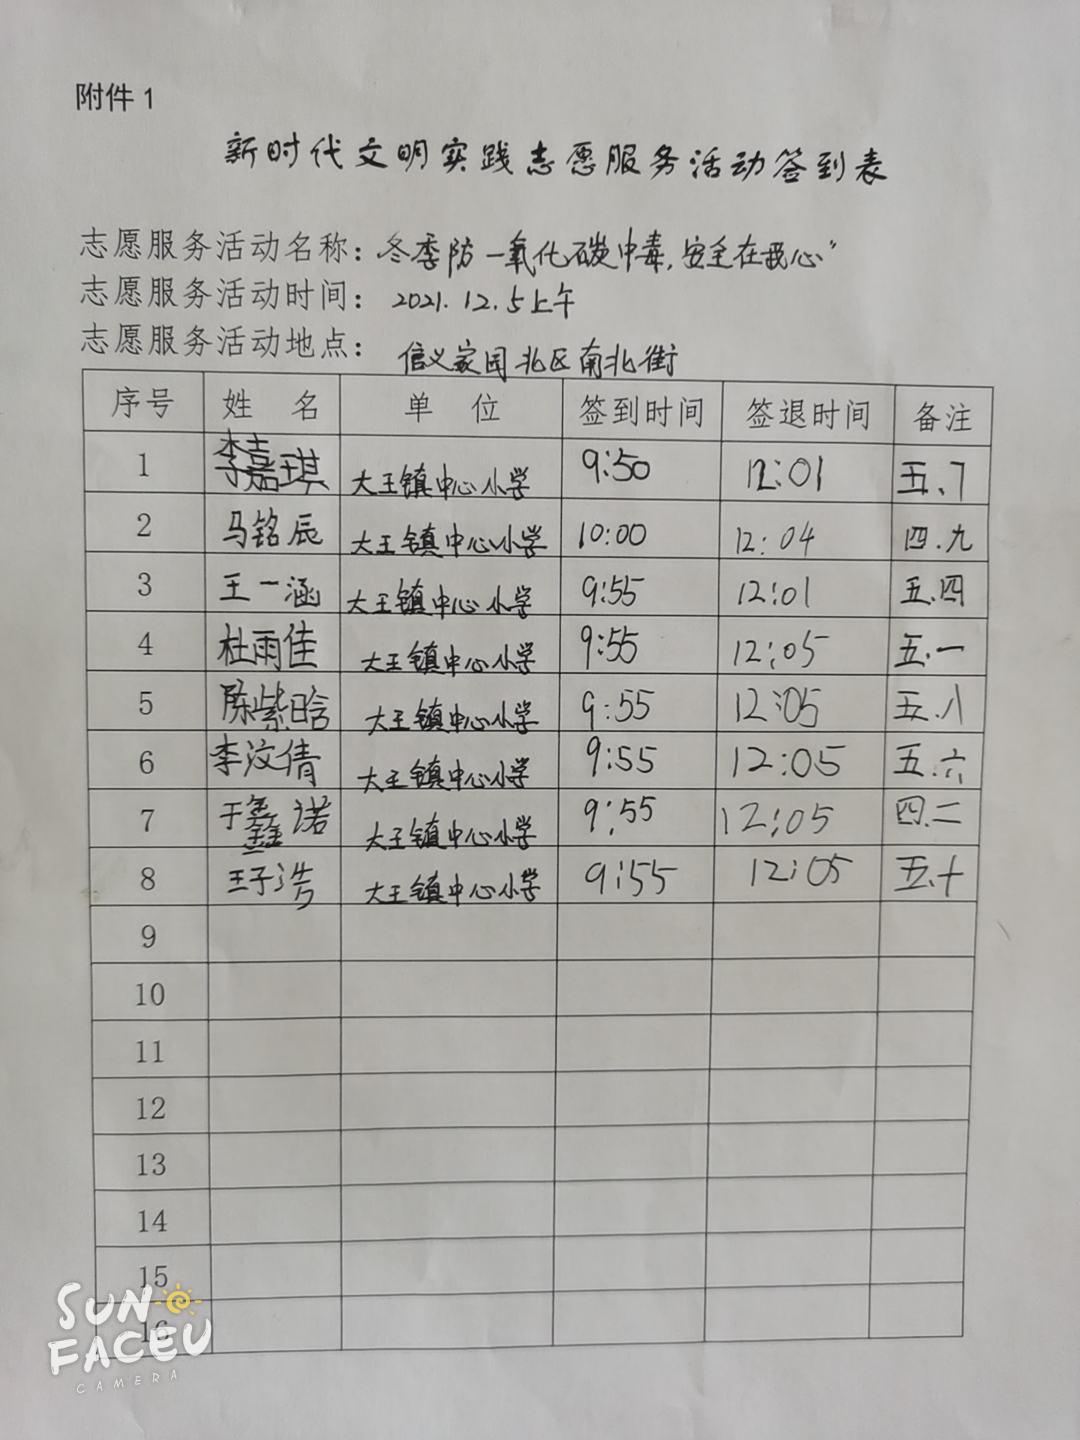 附件1
新时代文明实践志愿服务活动签到表
志愿服务活动名称：冬季防一氧化碳中毒，安全在我心”
志愿服务活动时间：2021.12.5上午
志愿服务活动地点：信义家园北区南北街
序号 姓名 单位 签到时间 签退时间 备注
1 李嘉琪 大王镇中心小学 9:50 12:01 五.7
2 马铭辰 大王镇中心小学 10:00 12:04 四.九
3 王一涵 大王镇中心小学 9:55 12:01 五.四
4 杜雨佳 大王镇中心小学 9:55 12:05 五.一
5 陈紫晗 大王镇中心小学 9:55 12:05 五.八
6 李汶倩 大王镇中心小学 9:55 12:05 五.六
7 于鑫诺 大王镇中心小学 9:55 12:05 四.二
8 王子浩 大王镇中心小学 9:55 12:05 五.十
9
10
11
12
13
14
15
16
SUN
FACEU
CAMERA